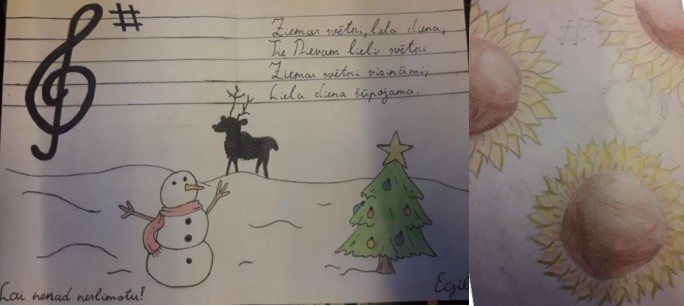 Ziemas svētki, liela diena,
Tie Dievam lieli svētki
Ziemas svētki vizināmi,
Liela diena šūpojama.
Lai nekad neslimotu!
Egil